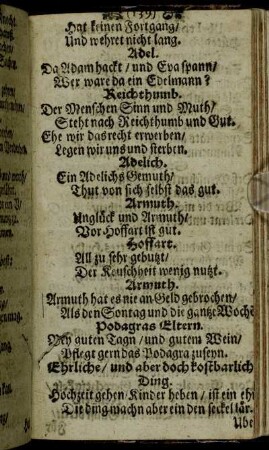 (139)
Hat keinen Fortgang/
Und wehret nicht lang.
Adel.
Da Adam hackt/ und Eva spann/
Wer ware da ein Edelmann?
Reichthumb.
Der Menschen Sinn und Muth/
Steht nach Reichthumb und Gut.
Ehe wir das recht erwerben/
Legen wir uns und sterben.
Adelich.
Ein Adelichs Gemuth/
Thut von sich selbst das gut.
Armuth.
Unglück und Armuth/
Vor Hoffart ist gut.
Hoffart.
All zu sehr gebutzt/
Der Keuschheit wenig nutzt.
Armuth.
Armuth hat es nie an Geld gebrochen/
Als den Sontag und die gantze Woche
Podagras Eltern.
Bey guten Tagn/ und gutem Wein/
Pflegt gern das Podagra zu seyn.
Ehrliche/ und aber doch kostbarlich
Ding.
Hochzeit gehen/ Kinder heben/ ist ein
Die ding machn aber ein den seckel lär.
Ube